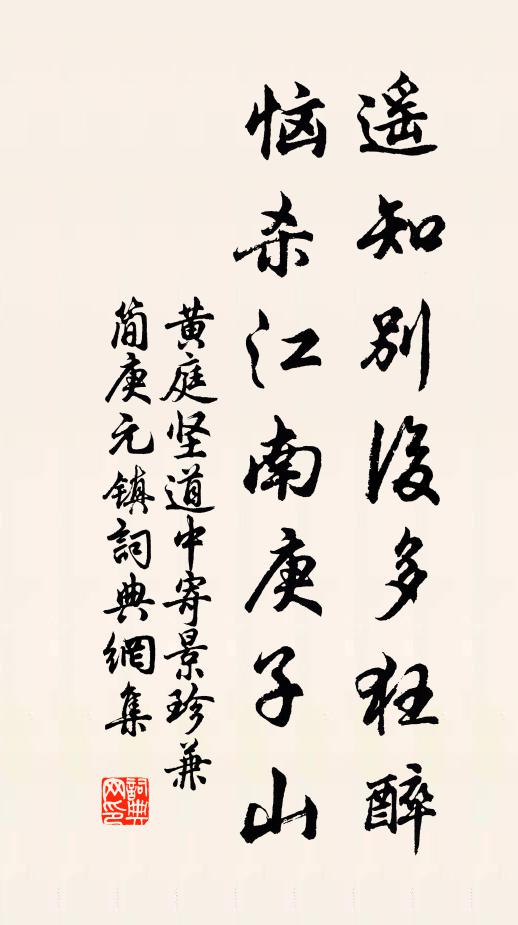 遥知别後多狂醉
恼杀江南庚子山
黄庭坚道中寄景珍兼
简庚元鎮詞典網集
詞典网印